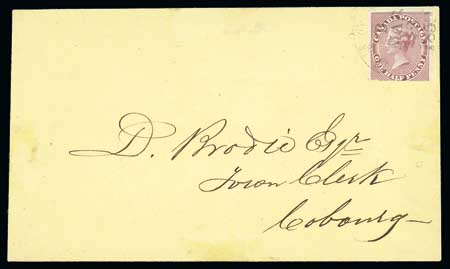 CANADA POSTAGE
ONE HALF PENNY
D. Brodie Esqr
Town Clerk
Cobourg